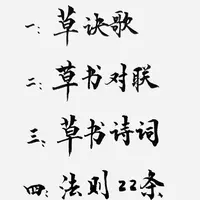 一：草诀歌
二：草书对联
三：草书诗词
四：法则22条